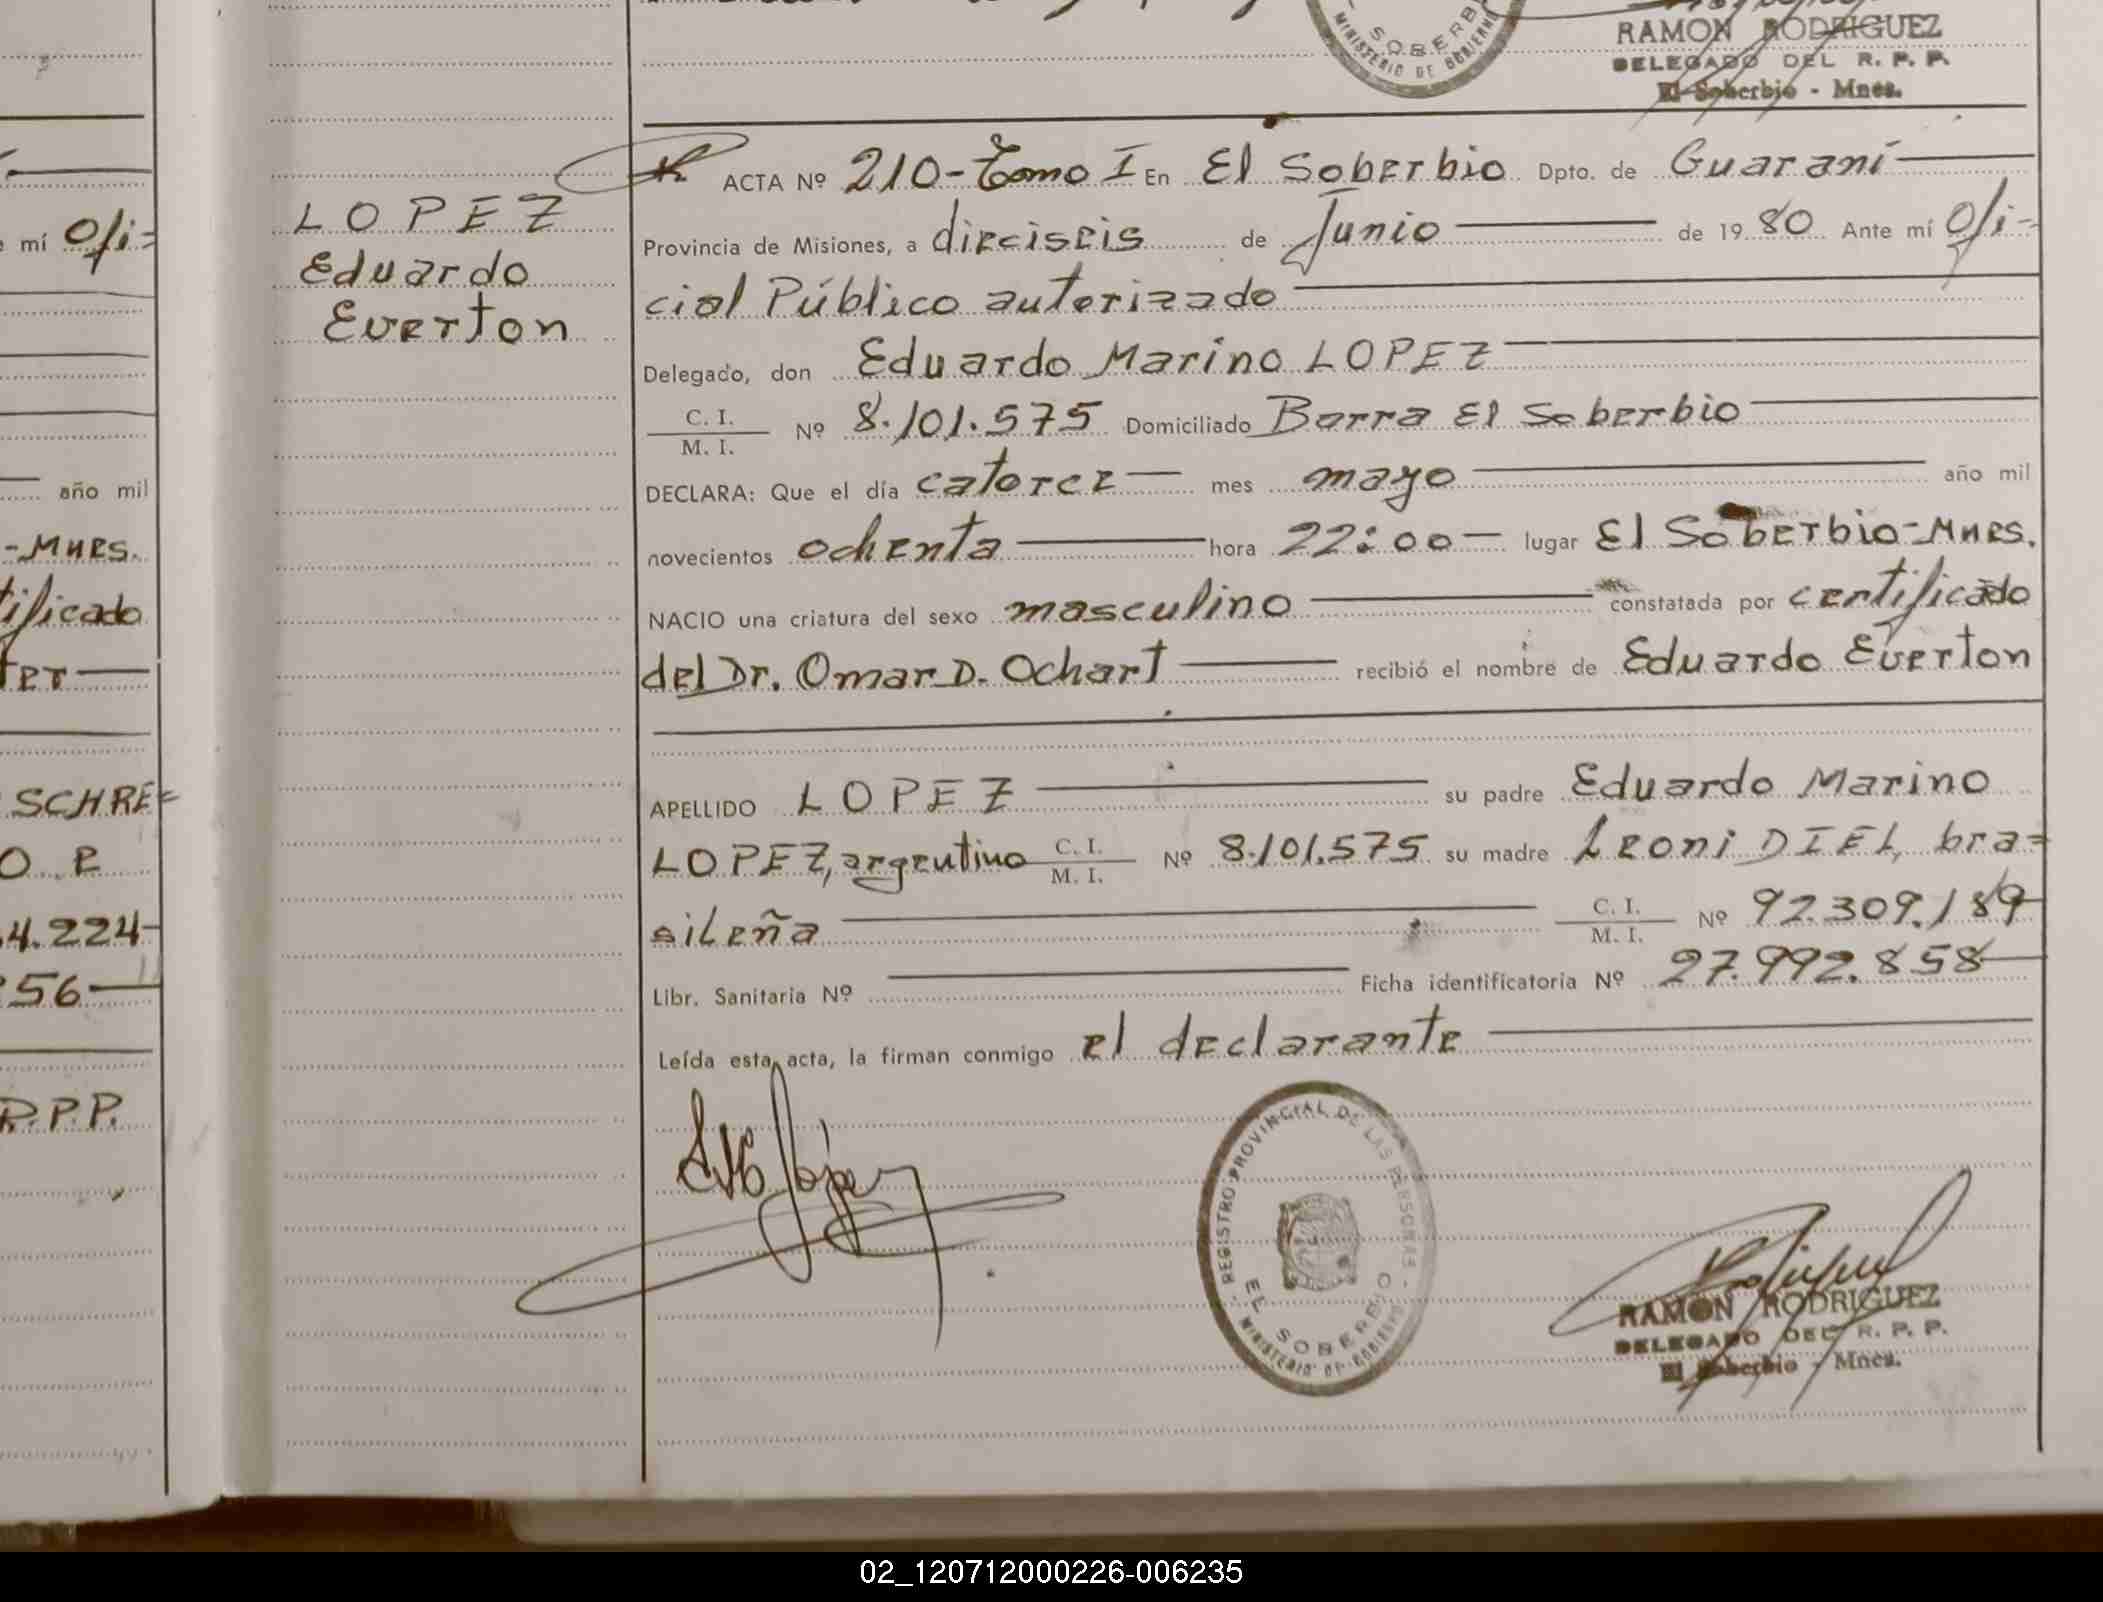 SOBERB
MINISTERIO DE GOBIERNO
RAMON RODRIGUEZ
DELEGADO DEL R. P. P.
El Soberbio - Mnes.
mí Ofi=
año mil
-Mnes.
tificado
TER
SCHRE=
O. E
4.224-
256
R.P.P.
LOPEZ
Eduardo
Everton
ACTA Nº 210-Tomo I En El Soberbio Dpto. de Guaraní
Provincia de Misiones, a dieciseis de Junio de 1980 Ante mí Ofi=
cial Público autorizado
Delegado, don Eduardo Marino LOPEZ
C. I.
M. I. Nº 8.101.575 Domiciliado Barra El Soberbio
DECLARA: Que el día catorce mes mayo año mil
novecientos ochenta hora 22:00 lugar El Soberbio-Mnes.
NACIO una criatura del sexo masculino constatada por certificado
del Dr. Omar D. Ochart recibió el nombre de Eduardo Everton
APELLIDO LOPEZ su padre Eduardo Marino
LOPEZ, argentino C. I. M. I. Nº 8.101.575 su madre Leoni DIEL, bra=
sileña C. I. M. I. Nº 92.309.189
Libr. Sanitaria Nº Ficha identificatoria Nº 27.992.858
Leída esta acta, la firman conmigo el declarante
REGISTRO PROVINCIAL DE LAS PERSONAS
EL SOBERBIO
MINISTERIO DE GOBIERNO
RAMON RODRIGUEZ
DELEGADO DEL R. P. P.
El Soberbio - Mnes.
02_120712000226-006235